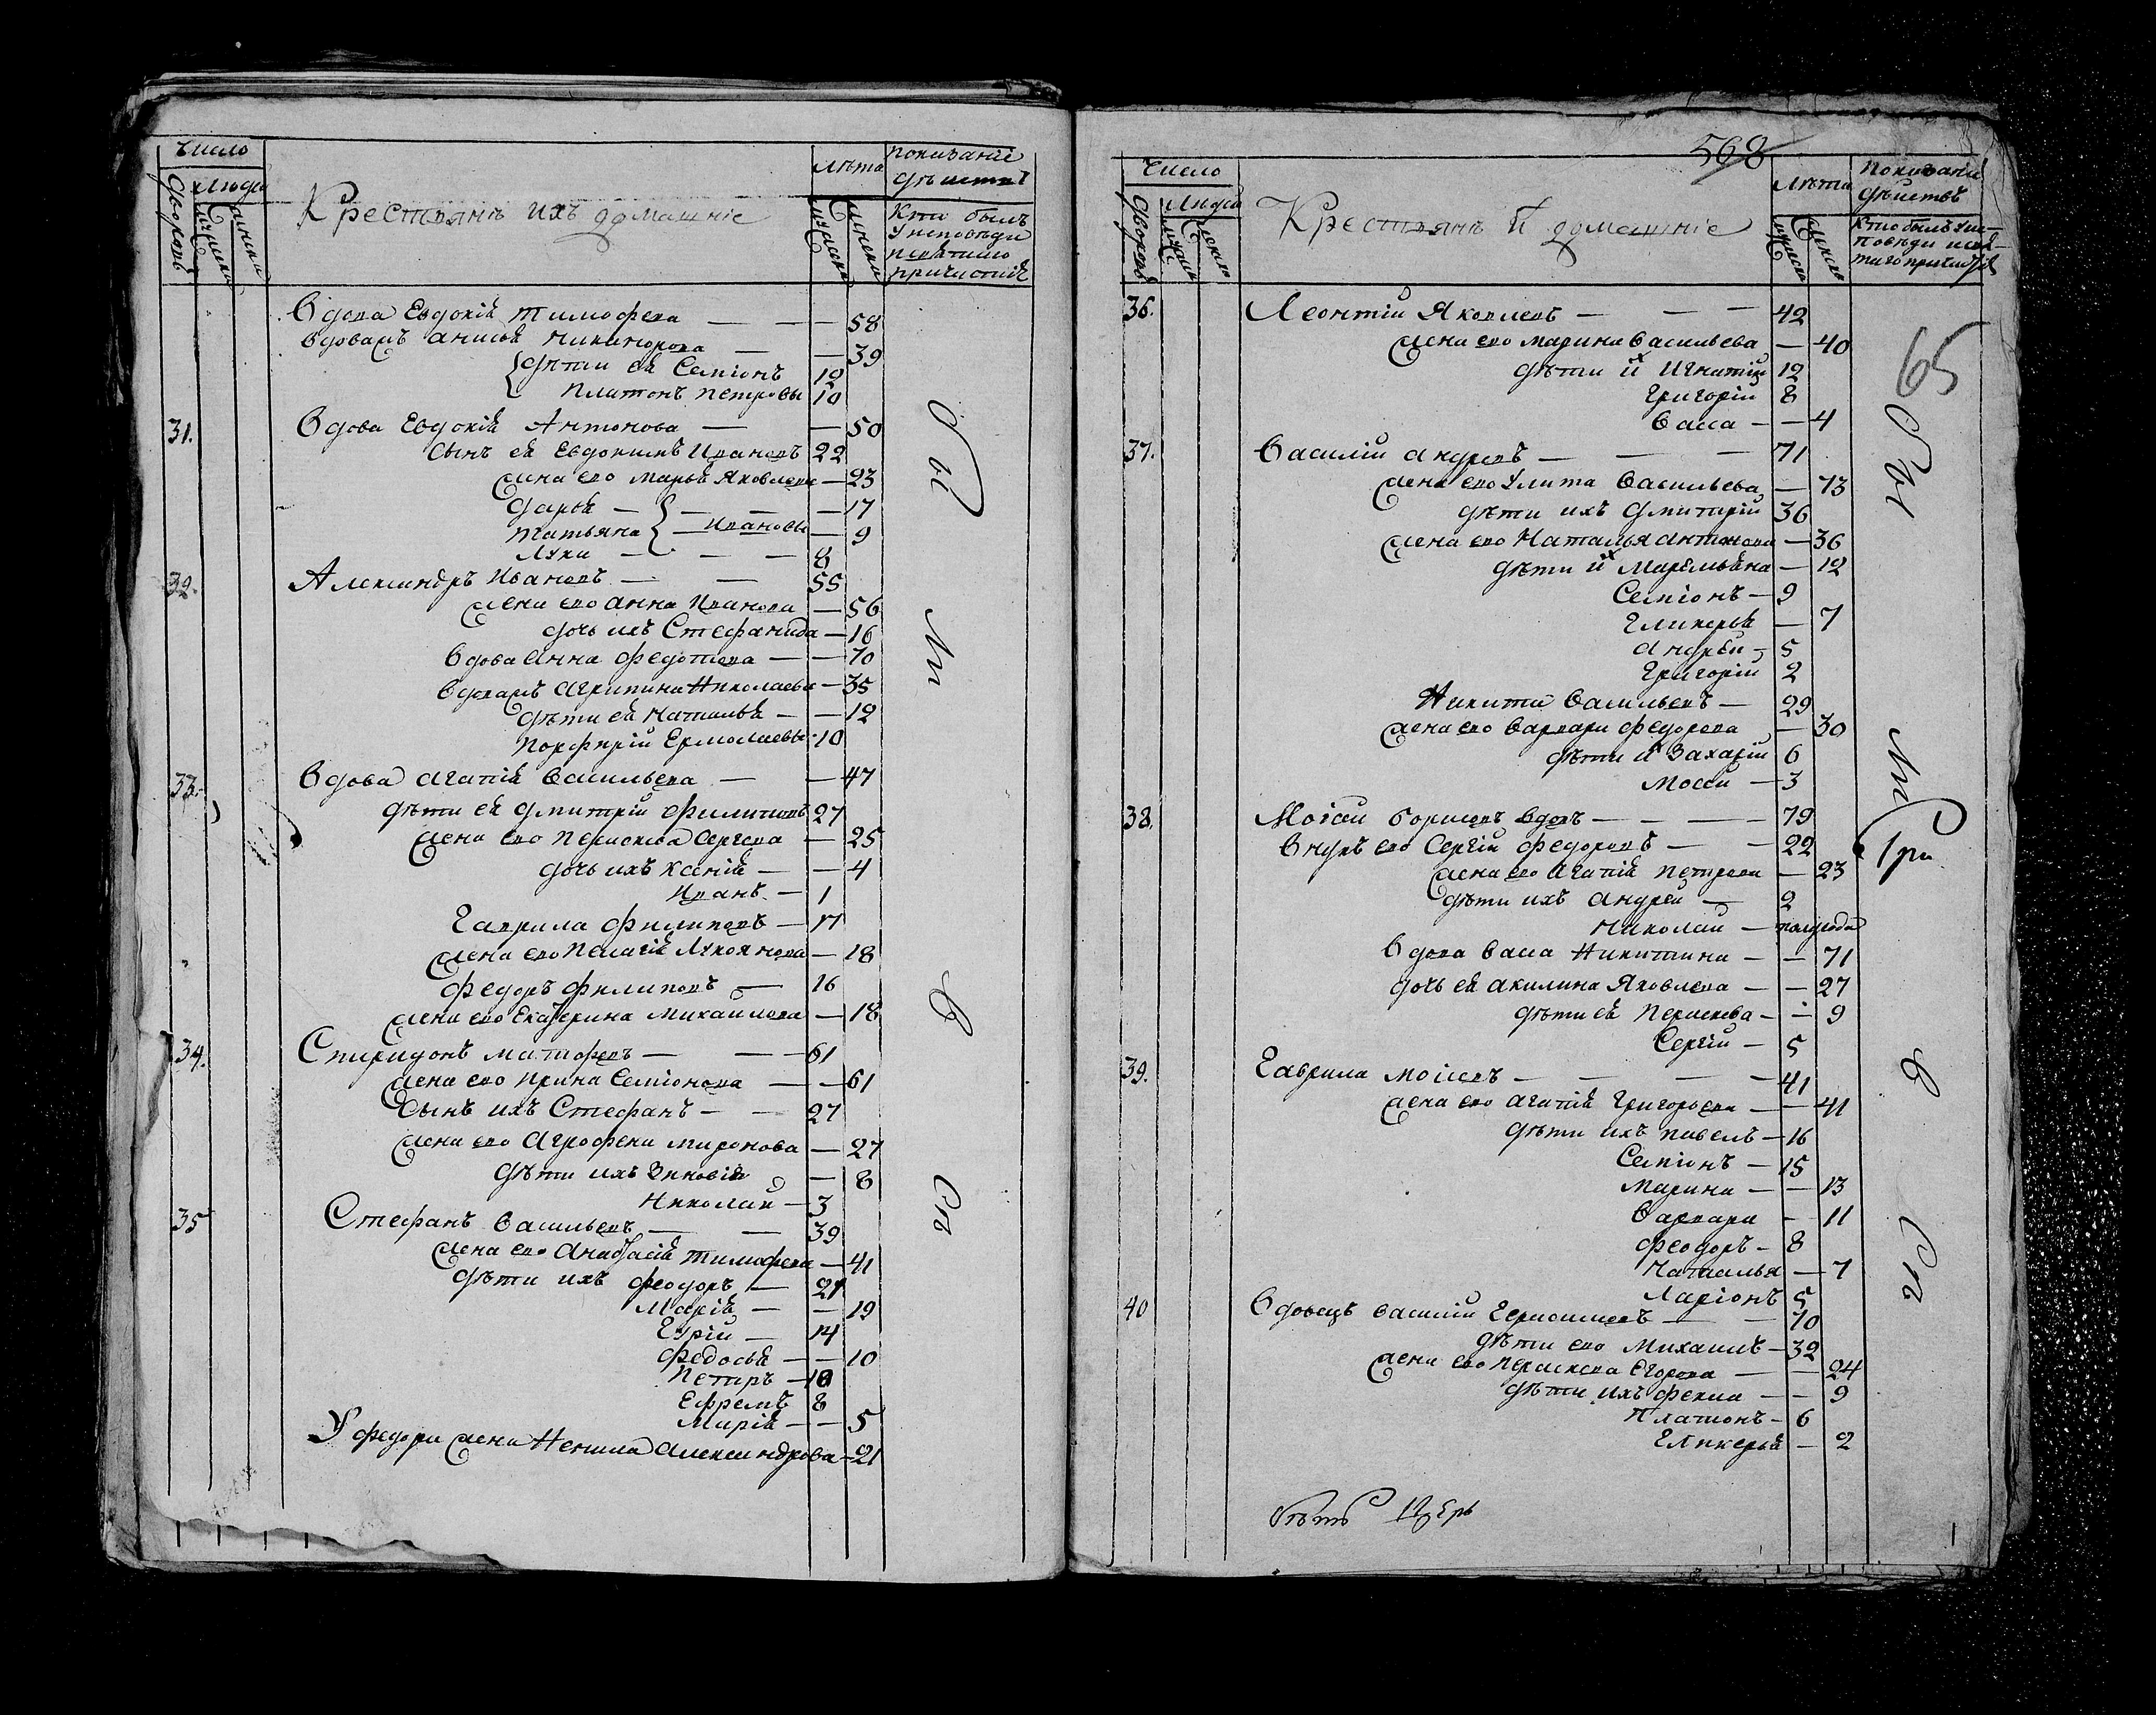 Число
Людей
Дворовъ
мужеска
женска
Крестьянъ ихъ домашніе
Лѣта
мужеска
женска
показаніе
дѣйствъ
Кто былъ
У исповѣди
и святаго
причастія
Вдова Евдокія Тимофева — — — 58
Вдоважъ Анисья Никифорова — — 39
дѣти ея Семіонъ 12
Платонъ Петровы 10
31. Вдова Евдокія Антонова — — 50
Сынъ ея Евдокимъ Ивановъ 22
жена ево Марья Яковлева — 23
Дарья — — — — 17
Татьяна — Ивановы — 9
Лука — — — 8
32. Александръ Ивановъ — — 55
жена ево Анна Иванова — 56
дочь ихъ Стефанида — 16
Вдова Анна Федотова — — 70
Вдоважъ Агрипина Николаева — 35
дѣти ея Наталья — — 12
Порфирій Ермолаевы 10
33. Вдова Агапія Васильева — — 47
дѣти ея Дмитрій Филиповъ 27
жена ево Перасковья Сергева — 25
дочь ихъ Ксенія — — 4
Иванъ — 1
Гаврила Филиповъ — 17
жена ево Пелагія Лукоянова — 18
Федоръ Филиповъ — 16
жена ево Екатерина Михайлова — 18
34. Спиридонъ Матфевъ — — — 61
жена ево Ирина Семіонова — — 61
Сынъ ихъ Стефанъ — — 27
жена ево Агрофена Миронова — 27
дѣти ихъ Зиновія — 8
Николай — 3
35 Стефанъ Васильевъ — — 39
жена ево Анастасія Тимофева — 41
дѣти ихъ Феодоръ — 21
Марія — — 19
Гурій — 14
Федосья — — 10
Петръ — 10
Ефремъ 8
Марія — — 5
У Федора жена Ненила Александрова — 21
Оы
Ли
В
Сп
568
Число
Людей
Дворовъ
мужеска
женска
Крестьянъ И домашніе
Лѣта
мужеска
женска
Показаніе
дѣйствъ
Кто былъ у ис-
повѣди и свя-
таго причастія
65
36. Леонтій Яковлевъ — — — 42
жена ево Марина Васильева — 40
дѣти их Игнатій 12
Григорій 8
Васса — — 4
37. Василій Андревъ — — — 71
жена ево Улита Васильева — 73
дѣти ихъ Дмитрій 36
жена ево Наталья Антонова — 36
дѣти их Маремьяна — 12
Семіонъ — 9
Гликерья — 7
Андрей — 5
Григорій 2
Никита Васильевъ — 29
жена ево Варвара Федорова — 30
дѣти их Захарій 6
Моссй — 3
38. Моісей Борисовъ вдовъ — — — 79
Внукъ ево Сергій Федоровъ — — 22
жена ево Агапія Петрова — 23
дѣти ихъ Андрей — 2
Николай — полугода
Вдова Васа Никитина — — 71
дочь ея Акилина Яковлева — — 27
дѣти ея Перасковья — — 9
Сергій — 5
39. Гаврила Моісевъ — — — — 41
жена ево Агапія Григорьева — — 41
дѣти ихъ Павелъ — 16
Семіонъ — 15
Марина — — 13
Варвара — 11
Феодоръ — 8
Наталья — 7
Ларіонъ 5
40 Вдовецъ Василій Гермонисевъ — — 70
дѣти ево Михаилъ — 32
жена ево Пераскева Егорова — — 24
дѣти ихъ Фекла — — 9
Платонъ — 6
Гликерья — 2
Оы
Ли
При
В
Сп